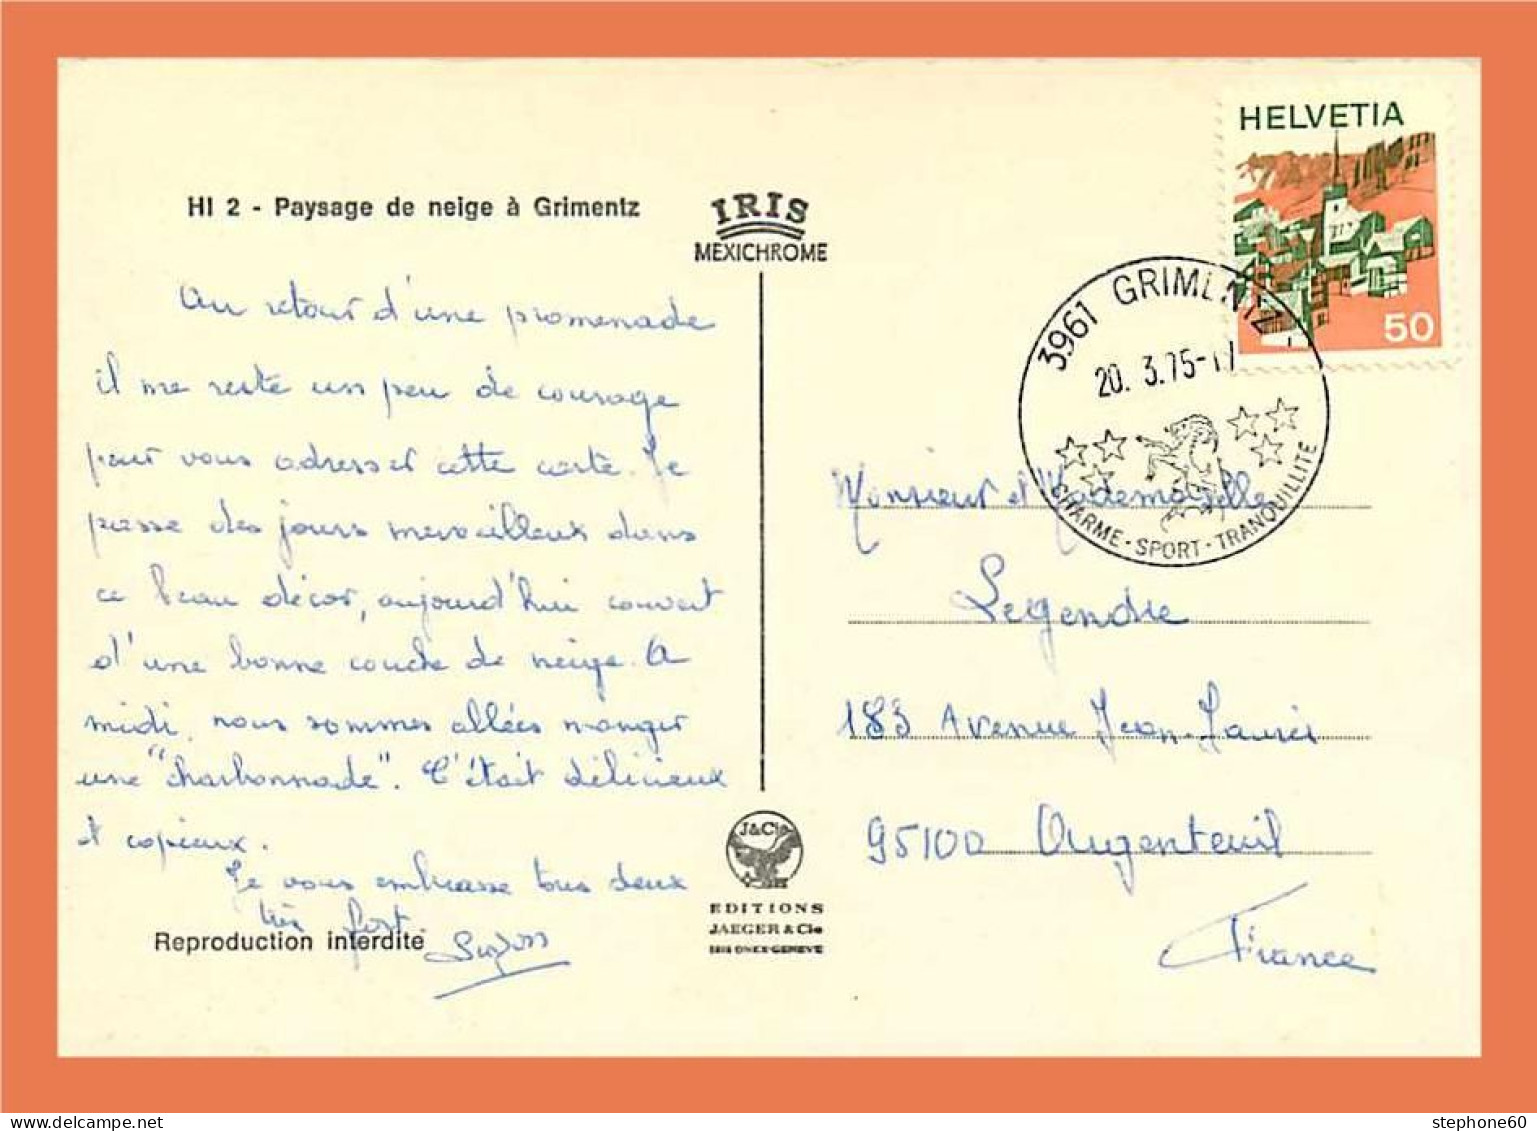 HELVETIA
50
3961 GRIMENTZ
20. 3.75-17
CHARME - SPORT - TRANQUILLITE
HI 2 - Paysage de neige à Grimentz
IRIS
MEXICHROME
Au retour d'une promenade
il me reste un peu de courage
pour vous adresser cette carte. Je
passe des jours merveilleux dans
ce beau décor, aujourd'hui couvert
d'une bonne couche de neige. A
midi, nous sommes allées manger
une "charbonnade". C'était délicieux
et copieux.
Je vous embrasse tous deux
très fort.
Reproduction interdite
Monsieur et Mademoiselle
Legendre
183 Avenue Jean-Jaurès
95100 Argenteuil
France
J&Cie
EDITIONS
JAEGER & Cie
1213 ONEX-GENEVE
stephone60